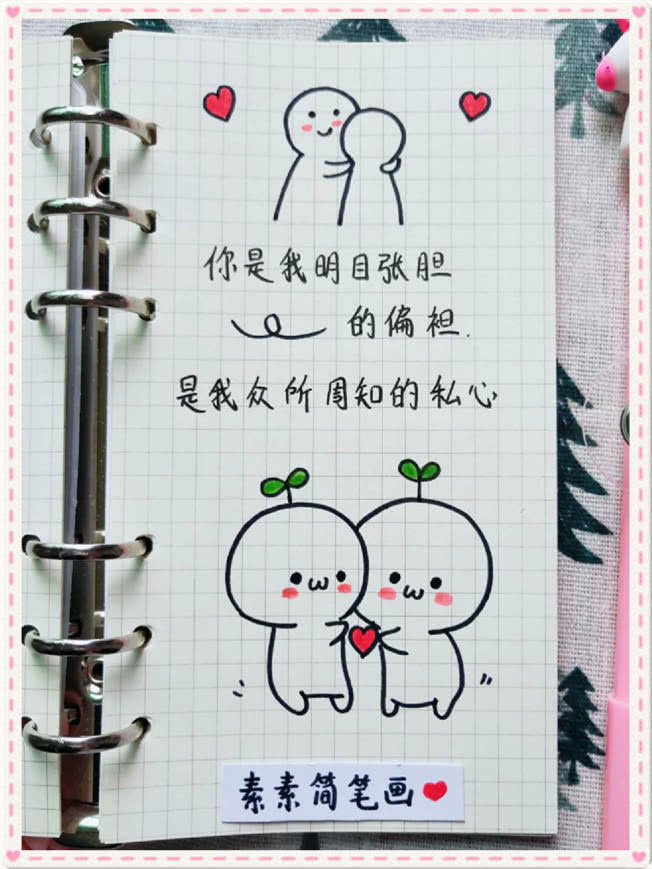 你是我明目张胆
的偏袒.
是我众所周知的私心
素素简笔画